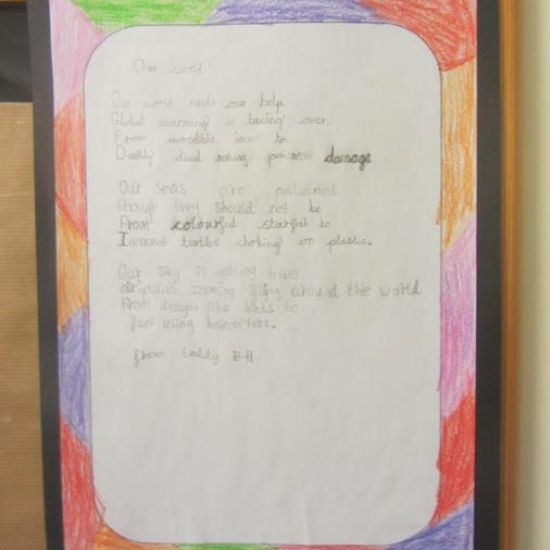 Our world
Our world needs our help.
Global warming is taking over.
From incredible
Deadly damage
Our seas are
though they should not be
From colourful starfish to
Innocent turtles choking on plastic.
Our sky is getting
airplanes zooming flying around the world
From dragon like birds to
fuel using
from teddy B-H